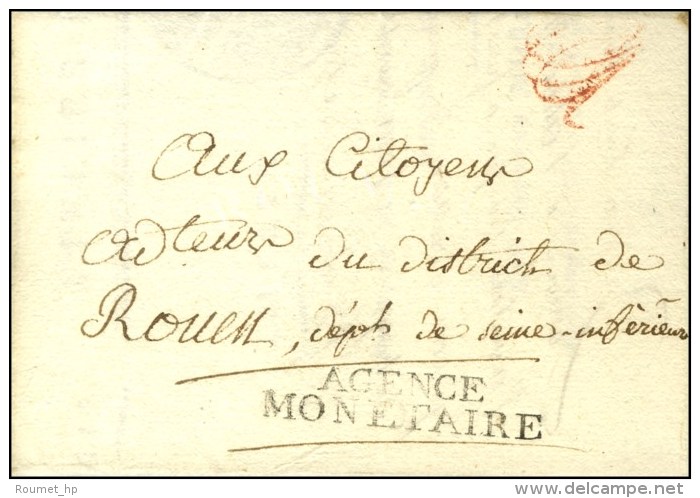 Aux Citoyens
du district de
Rouen, dépt. de seine-inférieure
AGENCE
MONETAIRE
Roumet_hp
© delcampe.net